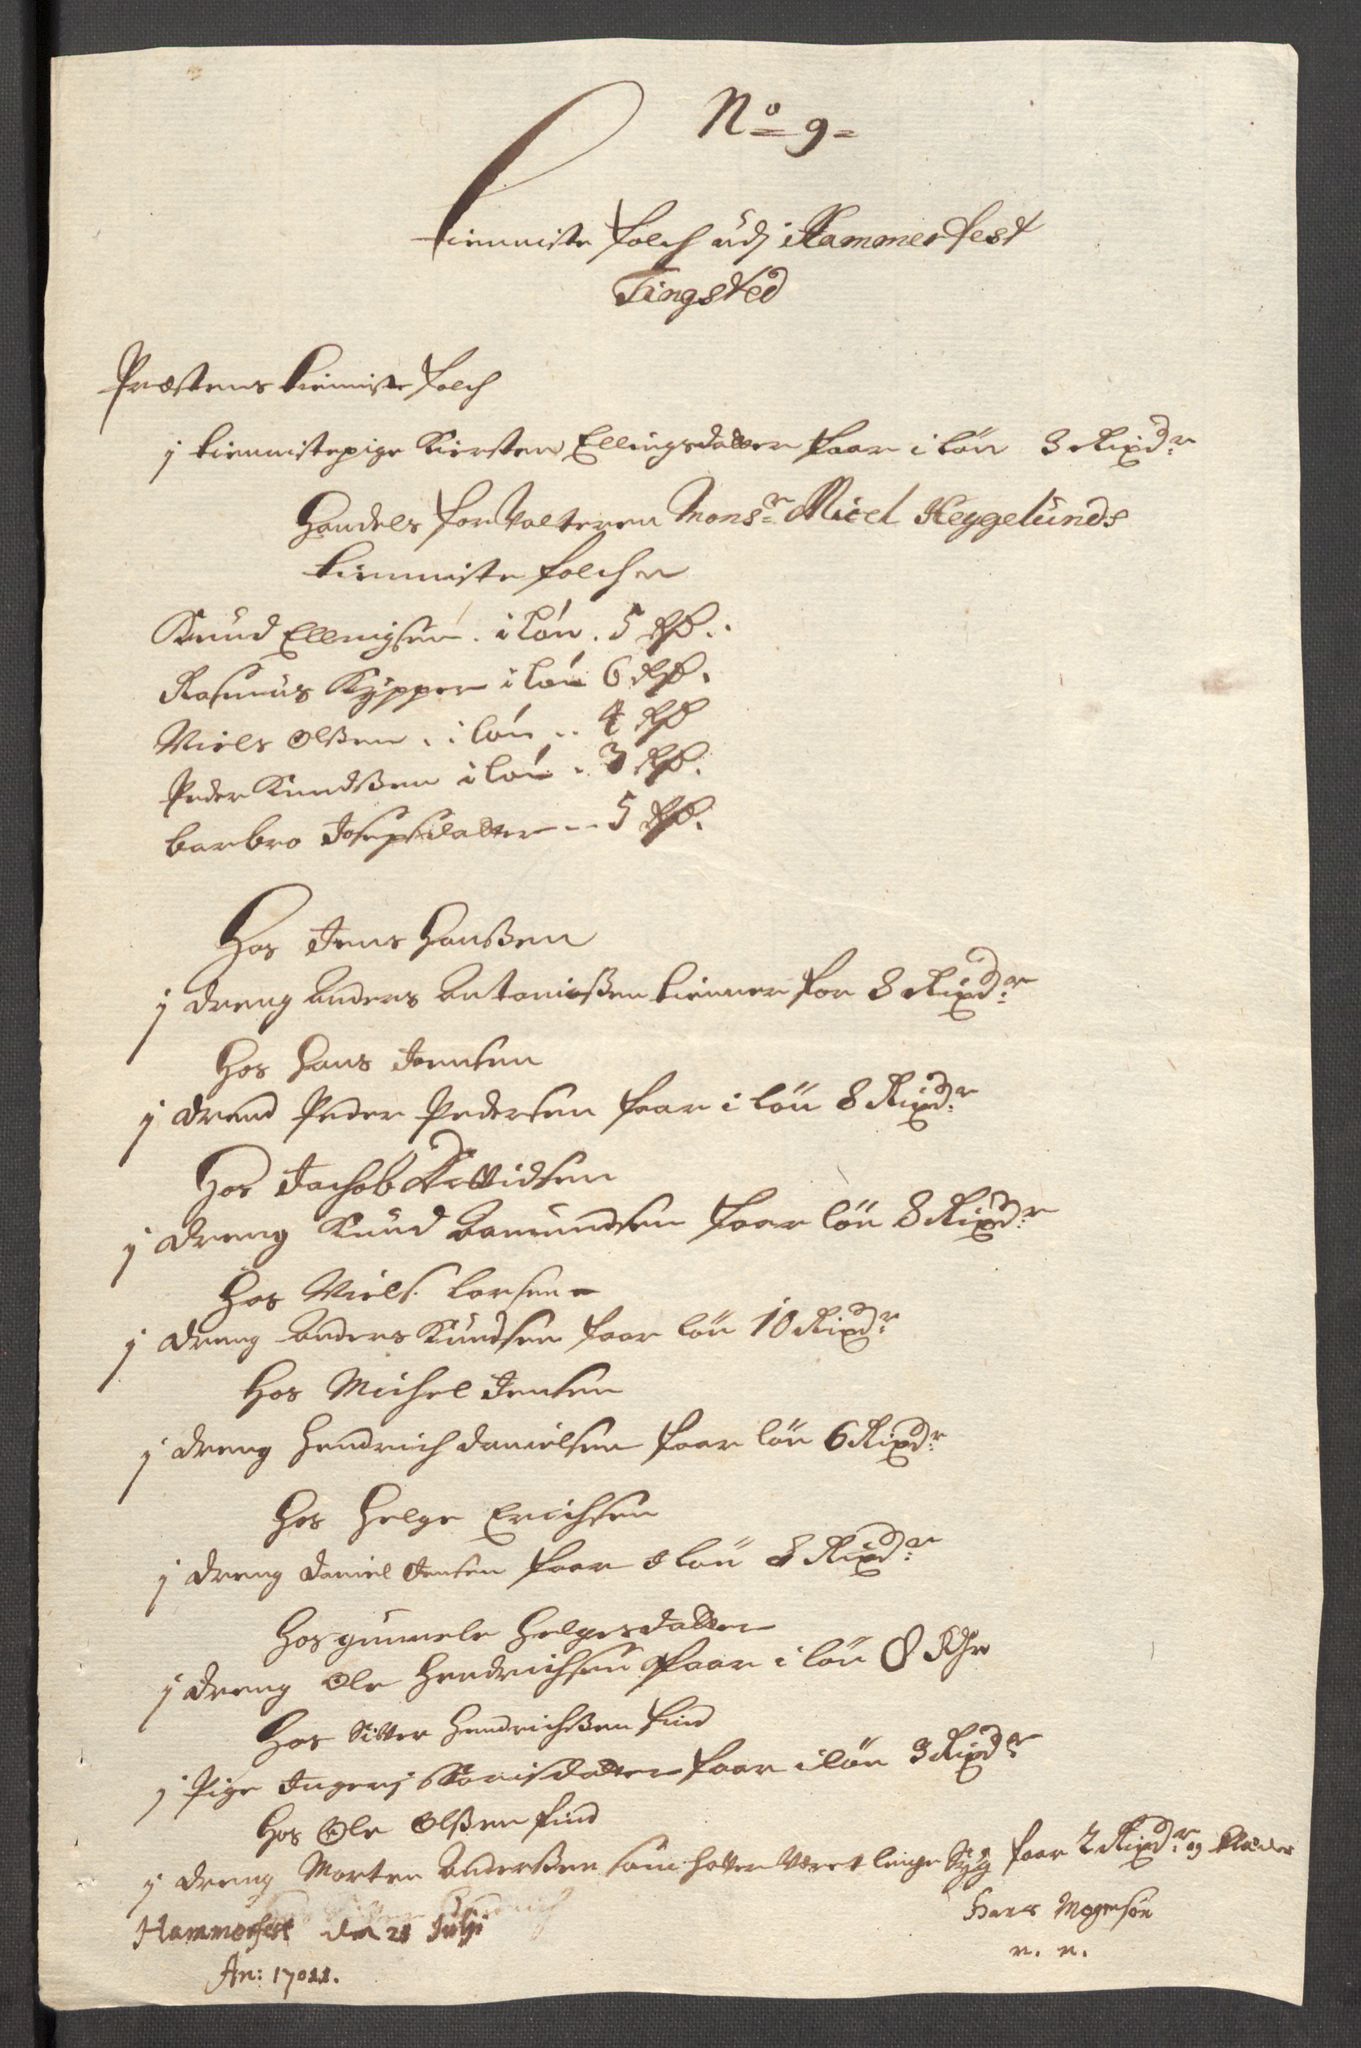 No 9
Tienniste folch udj Hammerfest
Tingsted
Præstens tienniste folch
j tiennistepige Kiersten Ellingsdatter faar i løn 3 Rixdr
Handels forvalteren Monsr Micel Heggelunds
tienniste folcher
Knud Ellingsen . i løn . 5 Rdr.
Rasmus Kypper i løn 6 Rdr.
Niels Olßen . i løn .. 4 Rdr
Peder Knudßen i løn . 3 Rdr.
barbro Josepsdatter .. 5 Rdr.
Hos Jens Hanßen
j dreng Anders Antonißen tienner for 8 Rixdr
Hos Hans Jensen
j dreng Peder Pedersen faar i løn 8 Rixdr
Hos Jachob
j dreng Knud Amundsen faar løn 8 Rixdr
Hos Niels Larsen
j dreng Anders Knudsen faar løn 10 Rixdr
Hos Michel Jensen
j dreng Hendrich Danielsen faar løn 6 Rixdr
Hos Helge Erichsen
j dreng Daniel Jensen faar i løn 8 Rixdr
Hos gunnele Helgesdatter
j dreng Ole Hendrichsen faar i løn 8 Rdr
Hos Hendrichßen find
j Pige Ingerj faar i løn 3 Rixdr
Hos Ole Olßen find
j dreng Morten Anderßen som hafver Været lenge Syg faar 2 Rixdr og klæder
Hammerfest den 21 Julij
An: 1702.
Hans Mogensøn